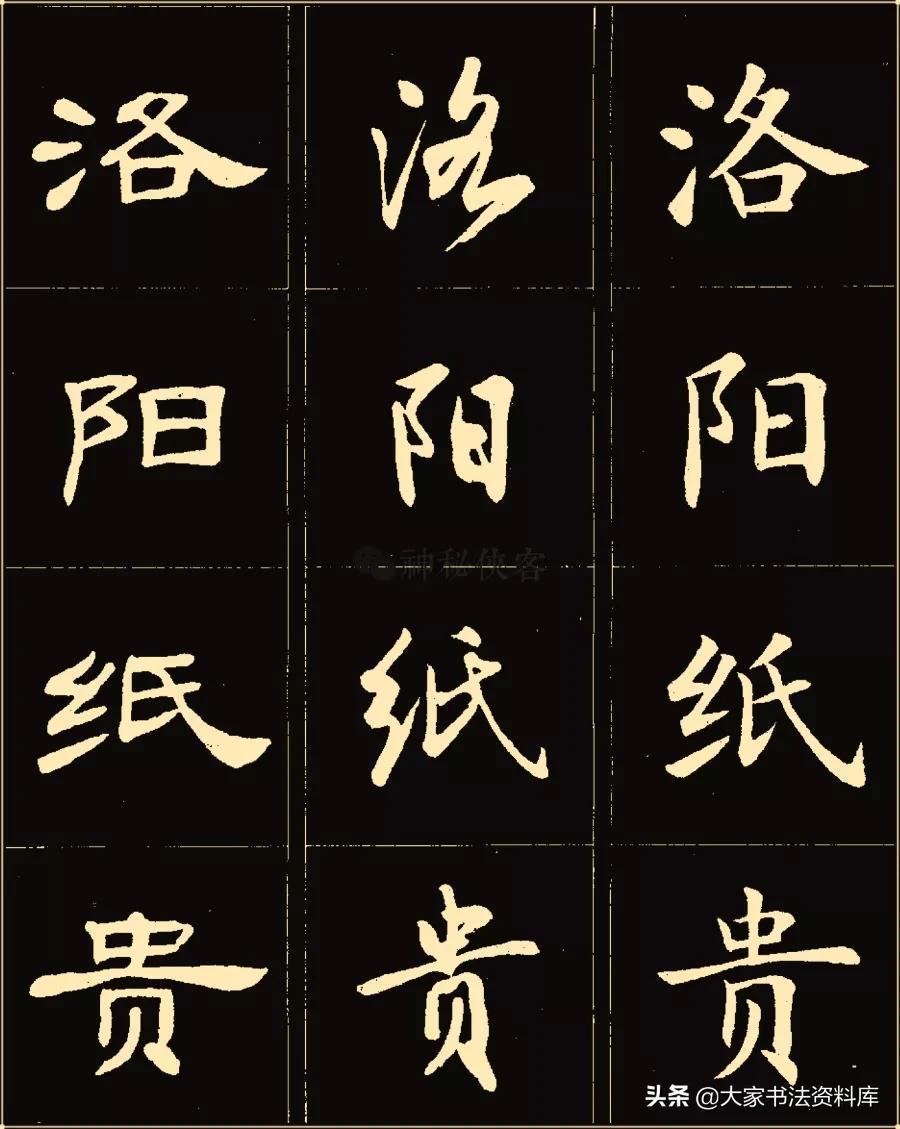 洛 洛 洛
阳 阳 阳
神秘侠客
纸 纸 纸
贵 贵 贵
头条 @大家书法资料库